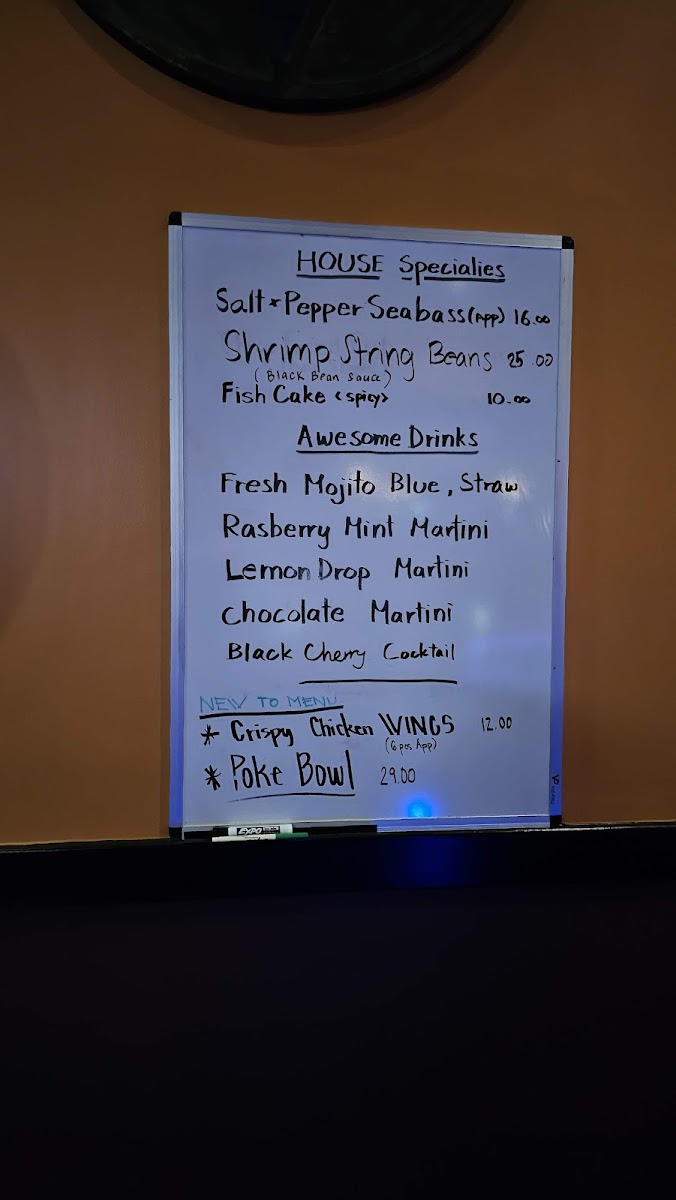 HOUSE Specialies
Salt * Pepper Seabass (App) 16.00
Shrimp String Beans 25.00
(Black Bean Sauce)
Fish Cake <spicy> 10.00
Awesome Drinks
Fresh Mojito Blue, Straw
Rasberry Mint Martini
Lemon Drop Martini
Chocolate Martini
Black Cherry Cocktail
NEW TO MENU
* Crispy Chicken WINGS 12.00
(6 pcs App)
* Poke Bowl 29.00
EXPO